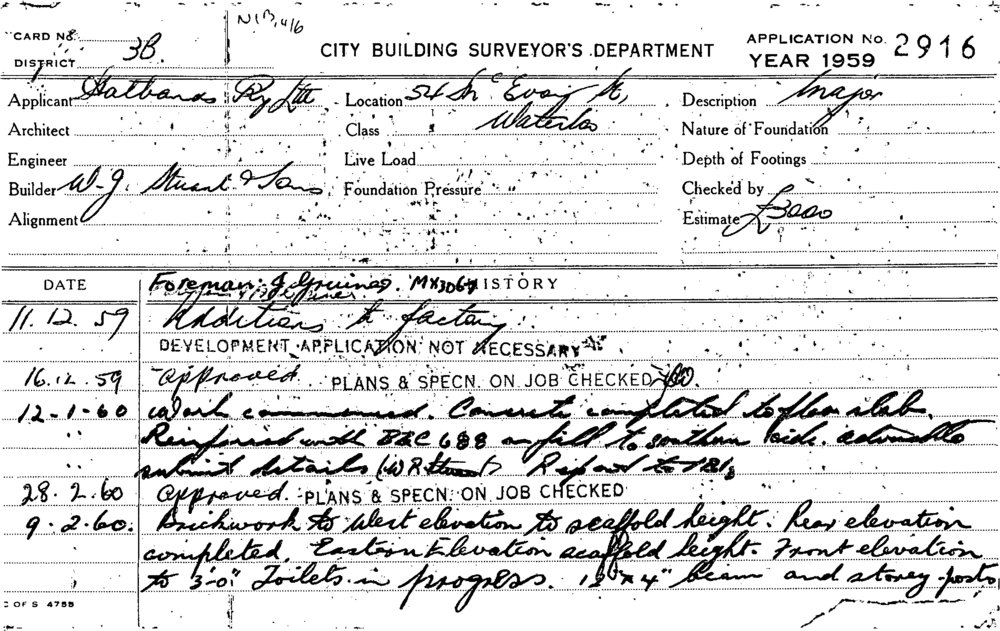 N1B,1416
CARD No. DISTRICT 3B.
CITY BUILDING SURVEYOR'S DEPARTMENT
APPLICATION No. 2916
YEAR 1959
Applicant Hatbands Pty Ltd
Location 54 McEvoy St,
Description Major
Architect
Class Waterloo
Nature of Foundation
Engineer
Live Load
Depth of Footings
Builder W. J. Stuart & Sons
Foundation Pressure
Checked by
Alignment
Estimate £3000
DATE Foreman J. Gruines. MX3064 HISTORY
11.12.59 Additions to factory.
DEVELOPMENT APPLICATION NOT NECESSARY
16.12.59 Approved. PLANS & SPECN. ON JOB CHECKED
12-1-60 Work commenced. Concrete completed to floor slab.
Reinforced with BRC 688 on fill to southern side.
submit details Report to
28.2.60 Approved. PLANS & SPECN. ON JOB CHECKED
9.2.60. Brickwork to West elevation to scaffold height. Rear elevation
completed. Eastern Elevation scaffold height. Front elevation
to 3'-0". Toilets in progress. 12" x 4" beam and storey posts
C OF S 475B